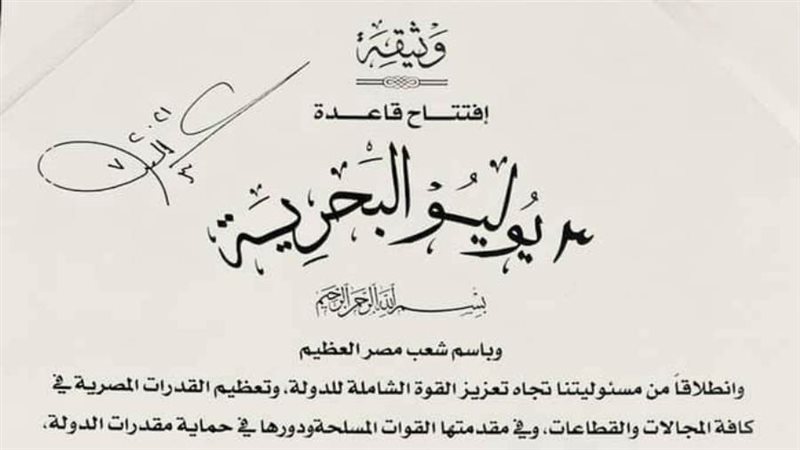 وَثيقة
إفتتاح قاعدة
٣ يُوليُو البَحرِية
بسم الله الرحمن الرحيم
وباسم شعب مصر العظيم
وانطلاقاً من مسئوليتنا تجاه تعزيز القوة الشاملة للدولة، وتعظيم القدرات المصرية في
كافة المجالات والقطاعات، وفي مقدمتها القوات المسلحة ودورها في حماية مقدرات الدولة،